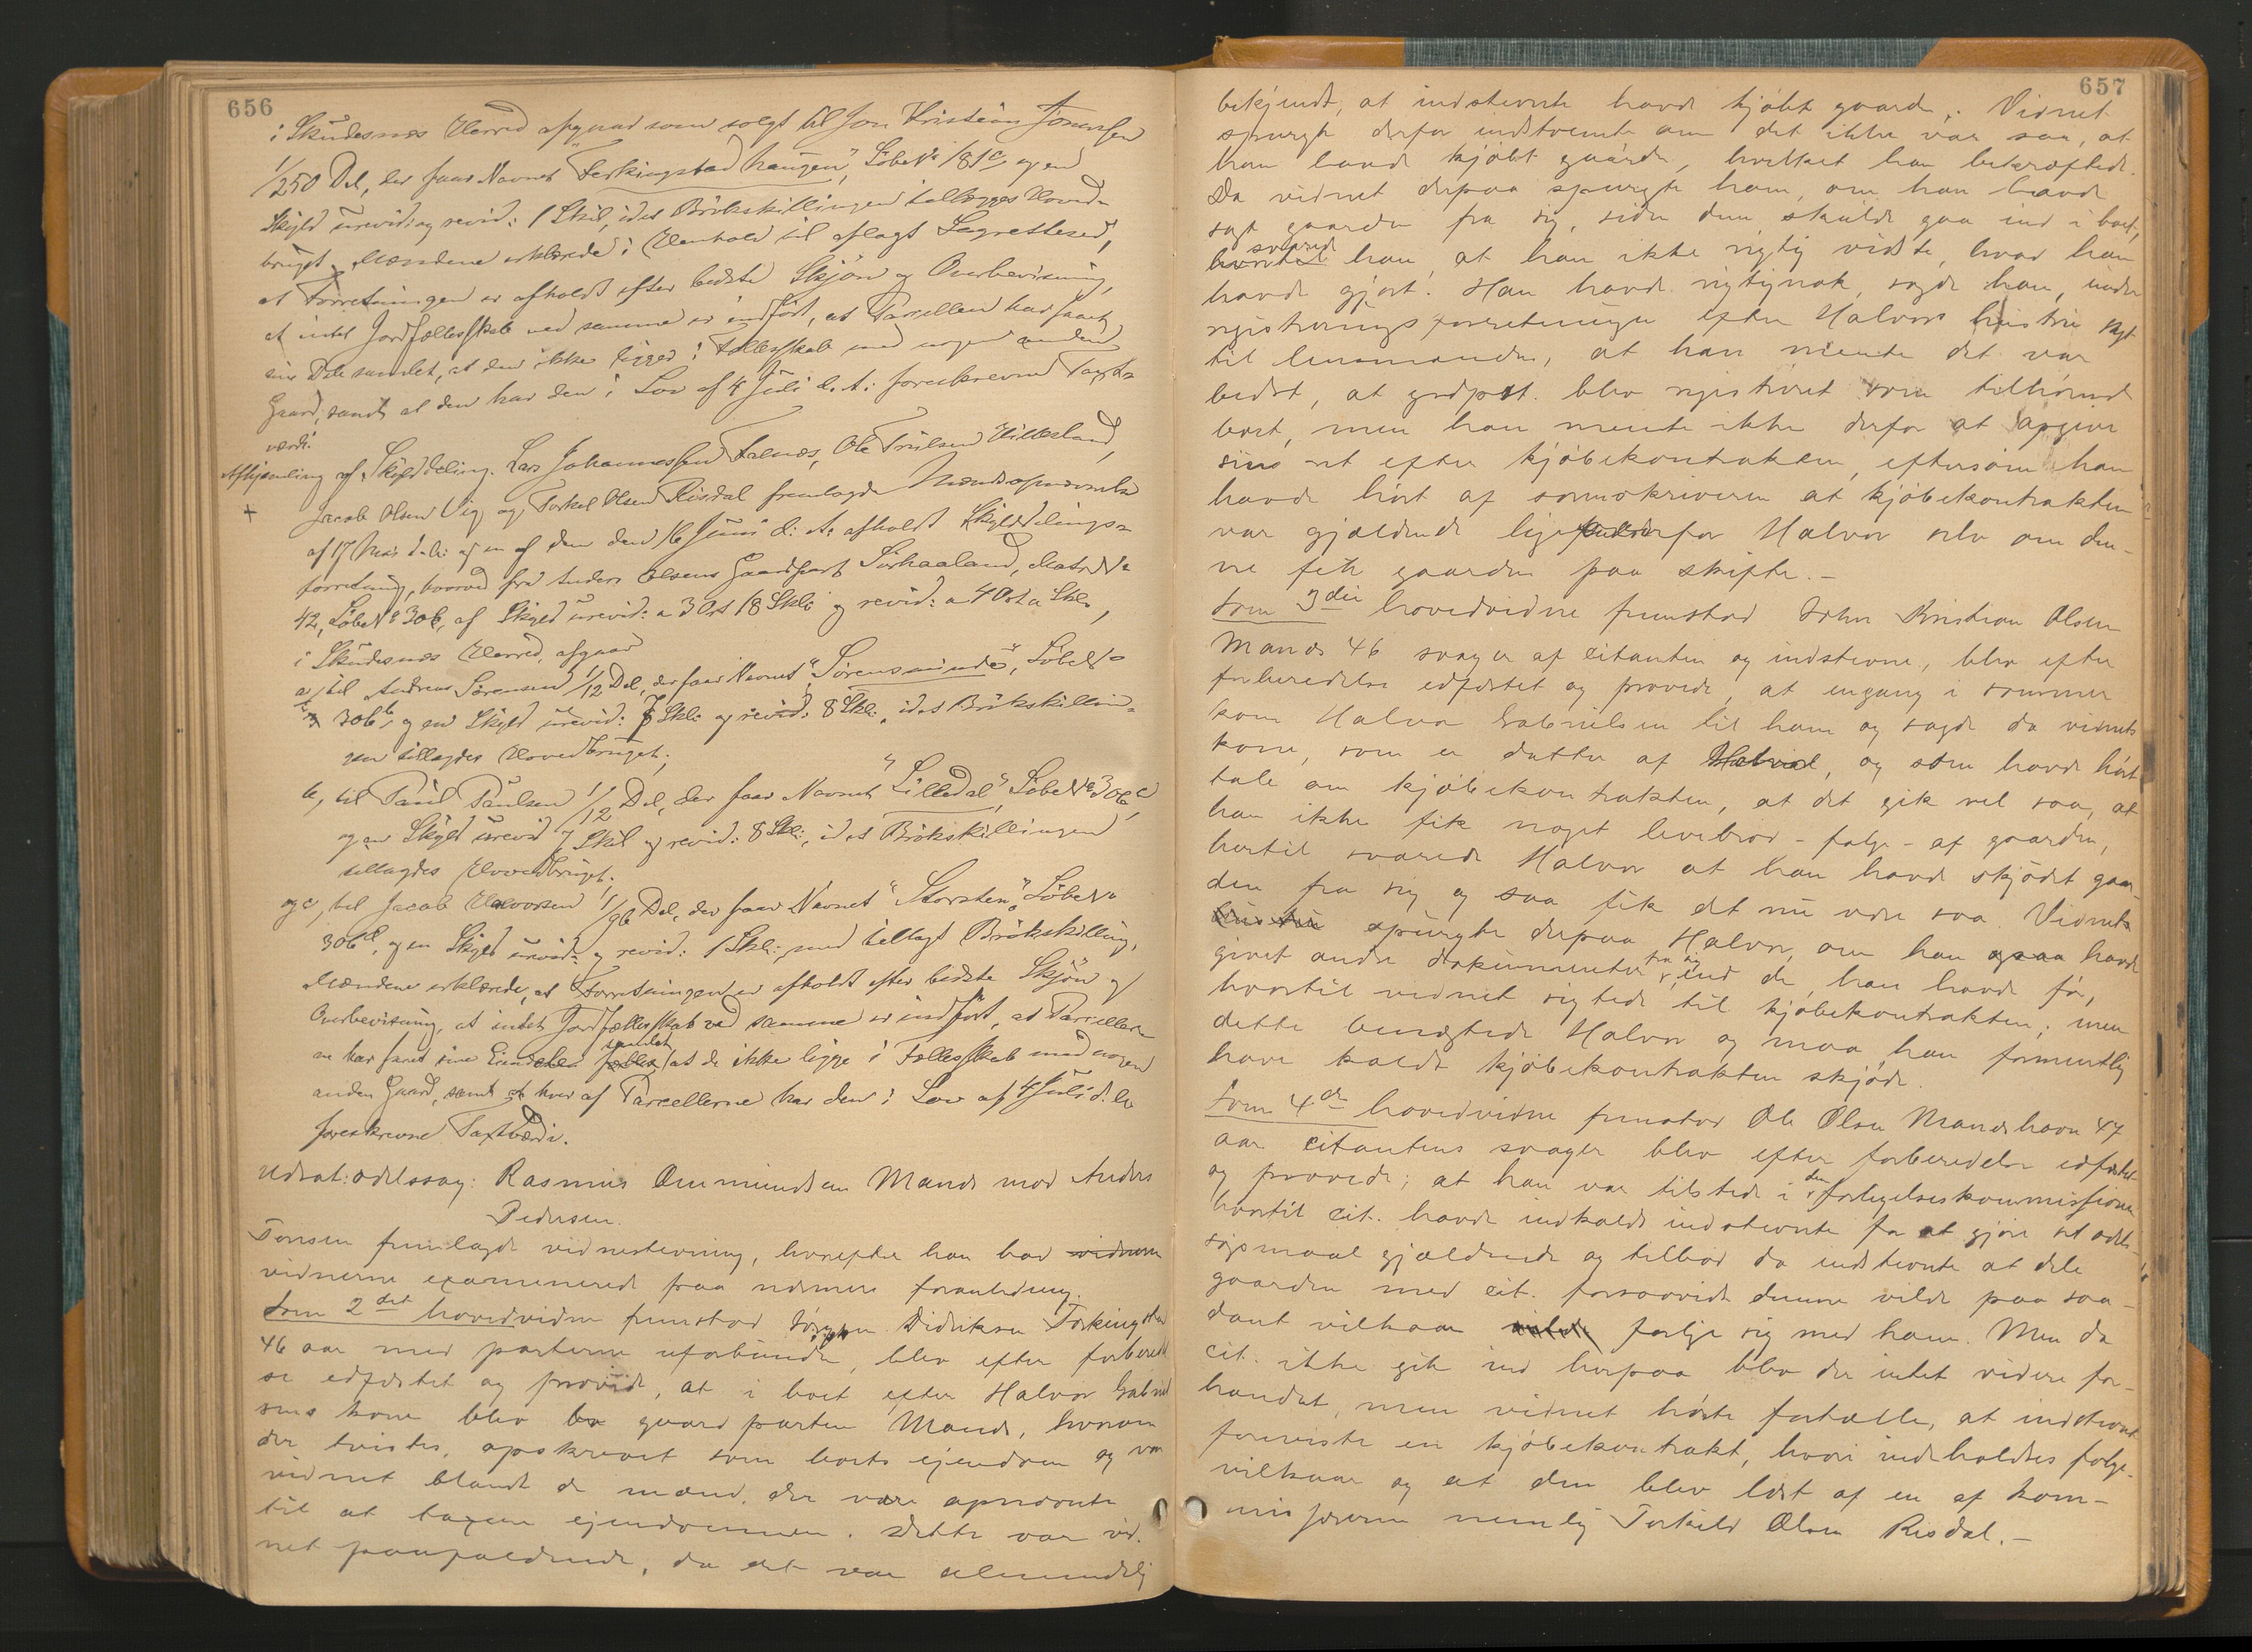 656
i Skudesnæs Herred afgaar som solgt til Jon Kristian Jonassen
1/250 Del, der faar Navnet "Ferkingstad haugen", Løbe No 181c og en
Skyld urevid: og revid: 1 Skil, idet Brøkskillingen tillægges Hoved-
bruget. Mændene erklærede i Henhold til aflagt Lagrettesed,
at Forretningen er afholdt efter bedste Skjøn og Overbevisning,
at intet Jordfællesskab ved samme er indført, at Parcellen har faaet
sin Del samlet, at den ikke ligger i Fællesskab med nogen anden
Gaard, samt at den har den i Lov af 4 Juli d. A. foreskrevne Taxt-
værdi.
Afhjemling af Skylddeling. Lars Johannessen Falnæs, Ole Trulsen Hillesland,
+ Jacob Olsen Vig og Torkel Olsen Risdal fremlagde Mændsopnævnelse
af 17 Mai d. A. og en af dem den 16 Juni d. A. afholdt Skylddelings-
forretning, hvorved fra Anders Olsens Gaardpart Sørhaaland, Matr No
42, Løbe No 306, af Skyld urevid: a 3 Ort 18 Skl: og revid: a 4 Ort a Skl.,
i Skudesnæs Herred, afgaar
a, til Andreas Sørensen 1/12 Del, der faar Navnet "Sørensminde", Løbe No
306b, og en Skyld urevid: 7 Skl: og revid: 8 Skl:, idet Brøkskillin-
gen tillagdes Hovedbruget;
b, til Paul Paulsen 1/12 Del, der faar Navnet "Lilledal", Løbe No 306c
og en Skyld urevid 7 Skil og revid: 8 Skl:, idet Brøkskillingen
tillagdes Hovedbruget;
og c, til Jacob Halvorsen 1/96 Del, der faar Navnet "Storsten", Løbe No
306d, og en Skyld urevid: og revid: 1 Skl:, med tillagt Brøkskilling.
Mændene erklærede, at Forretningen er afholdt efter bedste Skjøn og
Overbevisning, at intet Jordfællesskab ved samme er indført, at Parceller-
ne har faaet sine Eiendele samlet, at de ikke ligge i Fællesskab med nogen
anden Gaard, samt at hver af Parcellerne har den i Lov af 4 Juli d. A.
foreskrevne Taxtværdi.
Udsat: odelssag: Rasmus Ommundsen Mands mod Anders
Pedersen.
Tonsen fremlagde vidnestevning, hvorefter han bad vidnerne
vidnerne examinerede paa nærmere foranledning.
Som 2det hovedvidne fremstod Jørgen Didriksen Ferkingstad
46 aar med parterne uforbunden, blev efter forberedel
se edfæstet og provede, at i boet efter Halvor Gabriel
sens kone blev gaardparten Mands, hvorom
der tvistes, opskrevet som boets ejendom og var
vidnet blandt de mænd, der vare opnævnte
til at taxere ejendommen. Dette var vid-
net paafaldende, da det var almindelig
657
bekjendt, at indstevnte havde kjøbt gaarden. Vidnet
spurgte derfor indstevnte om det ikke var saa, at
han havde kjøbt gaarden, hvilket han bekræftede.
Da vidnet derpaa spurgte ham, om han havde
sagt gaarden fra sig, siden den skulde gaa ind i boet,
svarede han, at han ikke rigtig vidste, hvad han
havde gjort. Han havde rigtignok, sagde han, under
registreringsforretningen efter Halvors hustru sagt
til lensmanden, at han mente det var
bedst, at grdpart. blev registreret som tilhørende
boet, men han mente ikke derfor at opgive
sine ret efter kjøbekontrakten, eftersom han
havde hørt af sorenskriveren at kjøbekontrakten
var gjældende ligeoverfor Halvor selv om den-
ne fik gaarden paa skifte.-
Som 3die hovedvidne fremstod John Kristian Olsen
Mands 46 svoger af citanten og indstevne, blev efter
forberedelse edfæstet og provede, at engang i sommer
kom Halvor Gabrielsen til ham og sagde da vidnets
kone, som er datter af Halvor, og som havde hørt
tale om kjøbekontrakten, at det gik vel saa, at
han ikke fik noget levebrød - følge - af gaarden,
hertil svarede Halvor at han havde skjødet gaar-
den fra sig og saa fik det nu være saa. Vidnets
hustru spurgte derpaa Halvor, om han ogsaa havde
givet andre dokumenter fra sig end de, han havde før,
hvortil vidnet sigtede til kjøbekontrakten; men
dette benægtede Halvor og maa han formentlig
have kaldt kjøbekontrakten skjøde.
Som 4de hovedvidne fremstod Ole Olsen Mandshavn 47
aar citantens svoger blev efter forberedelse edfæstet
og provede; at han var tilstede i den forligelseskommission
hvortil cit. havde indkaldt indstevnte for at gjøre sit odels-
søgsmaal gjældende og tilbød da indstevnte at dele
gaarden med cit. forsaavidt denne vilde paa saa-
dant vilkaar forlige sig med ham. Men da
cit. ikke gik ind herpaa blev der intet videre for-
handlet, men vidnet hørte fortælle, at indstevnt
foreviste en kjøbekontrakt, hvori indholdtes følge-
vilkaar og at den blev læst af en af kom-
missærerne nemlig Torkild Olsen Risdal.-